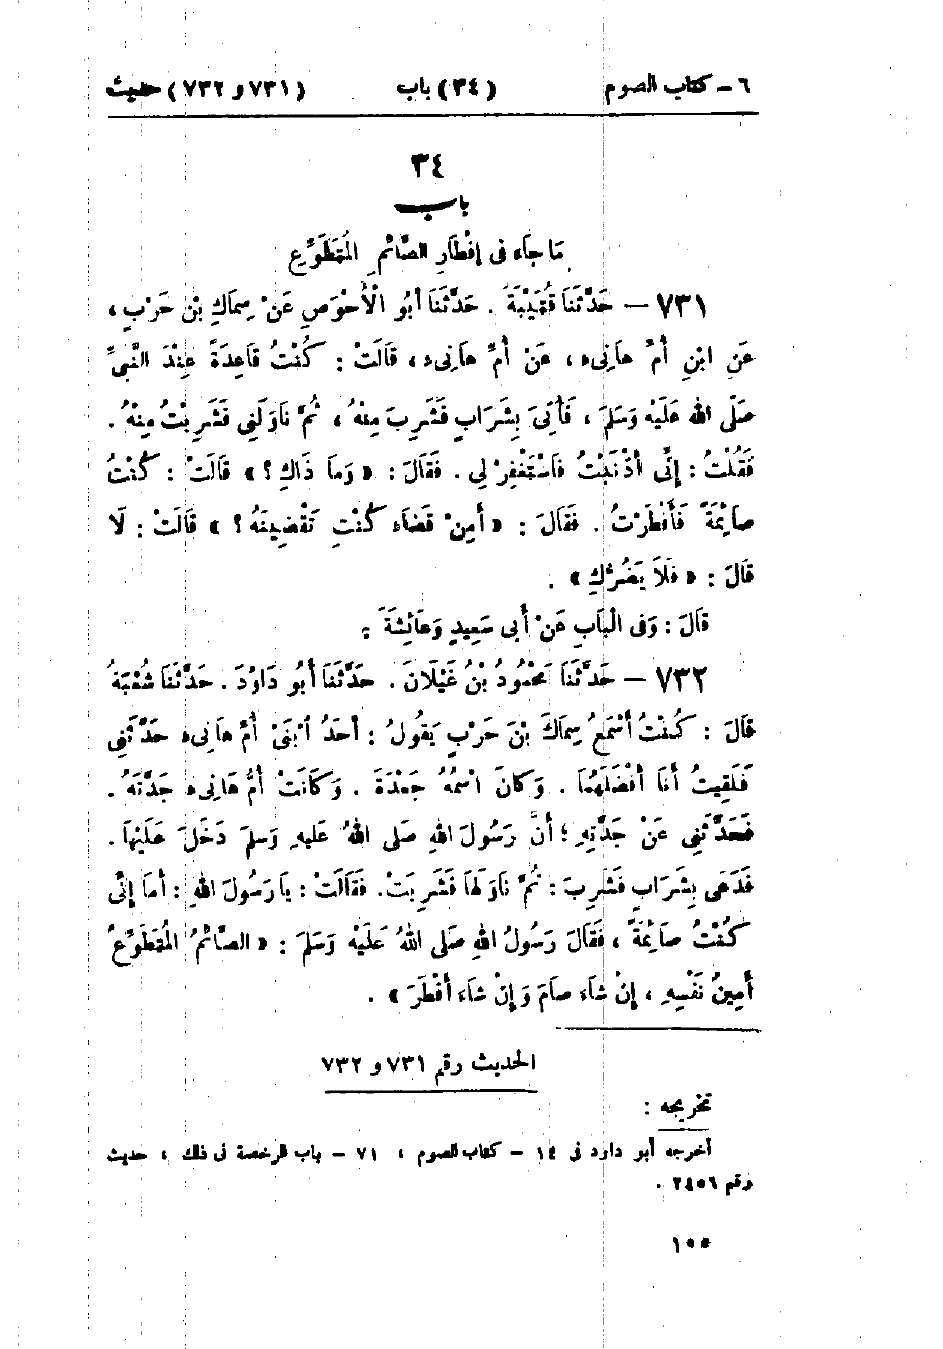 ٦ - كتاب الصوم (٣٤) باب (٧٣١ و ٧٣٢) حديث
٣٤
باب
مَا جَاءَ فى إفْطَارِ الصَّائمِ المُتَطَوِّعِ
٧٣١ — حَدَّثَنَا قُتَيْبَةُ . حَدَّثَنَا أبُو الْأَحْوَصِ عَنْ سِمَاكِ بْنِ حَرْبٍ ،
عَنِ ابْنِ أمِّ هَانِىء ، عَنْ أمِّ هَانِىء ، قَالَتْ : كُنْتُ قَاعِدَةً عِنْدَ النَّبىِّ
صَلَّى اللهُ عَلَيْهِ وَسَلمَ ، فَأُتِىَ بِشَرَابٍ فَشَرِبَ مِنْهُ ، ثُمَّ نَاوَلَنِى فَشَرِبْتُ مِنْهُ .
فَقُلْتُ : إنِّى أذْنَبْتُ فَاسْتَغْفِرْ لِى . فَقَالَ : « وَمَا ذَاكِ ؟ » قَالَتْ : كُنْتُ
صَائِمَةً فَأَفْطَرْتُ . فَقَالَ : « أمِنْ قَضَاء كُنْتِ تَقْضِينَهُ ؟ » قَالَتْ : لَا
قَالَ : « فَلَا يَضُرُّكِ » .
قَالَ : وَفى الْبَابِ عَنْ أبى سَعِيدٍ وَعَائِشَةَ .
٧٣٢ — حَدَّثَنَا مَحْمُودُ بْنُ غَيْلَانَ . حَدَّثَنَا أبُو دَاوُدَ . حَدَّثَنَا شُعْبَةُ
قَالَ : كُنْتُ أسْمَعُ سِمَاكَ بْنَ حَرْبٍ يَقُولُ : أحَدُ ابْنَىْ أمِّ هَانِىء حَدَّثَنِى
فَلَقِيتُ أنَا أفْضَلَهُمَا . وَكَانَ اسْمُهُ جَعْدَةَ . وَكَانَتْ أمُّ هَانِىء جَدَّتَهُ .
فَحَدَّثَنِى عَنْ جَدَّتِهِ ؛ أنَّ رَسُولَ اللهِ صَلى اللهُ عَليهِ وَسَلمَ دَخَلَ عَلَيْهَا .
فَدَعَى بِشَرَابٍ فَشَرِبَ : ثُمَّ نَاوَلَهَا فَشَرِبَتْ . فَقَالَتْ : يَا رَسُولَ اللهِ : أمَا إنِّى
كُنْتُ صَائِمَةً ، فَقَالَ رَسُولُ اللهِ صَلى اللهُ عَلَيْهِ وَسَلمَ : « الصَّائمُ المُتَطَوِّعُ
أمِينُ نَفْسِهِ ، إنْ شَاءَ صَامَ وَإنْ شَاءَ أفْطَرَ » .
الحديث رقم ٧٣١ و ٧٣٢
تخريجه :
أخرجه أبو داود فى ١٤ - كتاب الصوم ، ٧١ - باب الرخصة فى ذلك ، حديث
رقم ٢٤٥٦ .
١٠٠